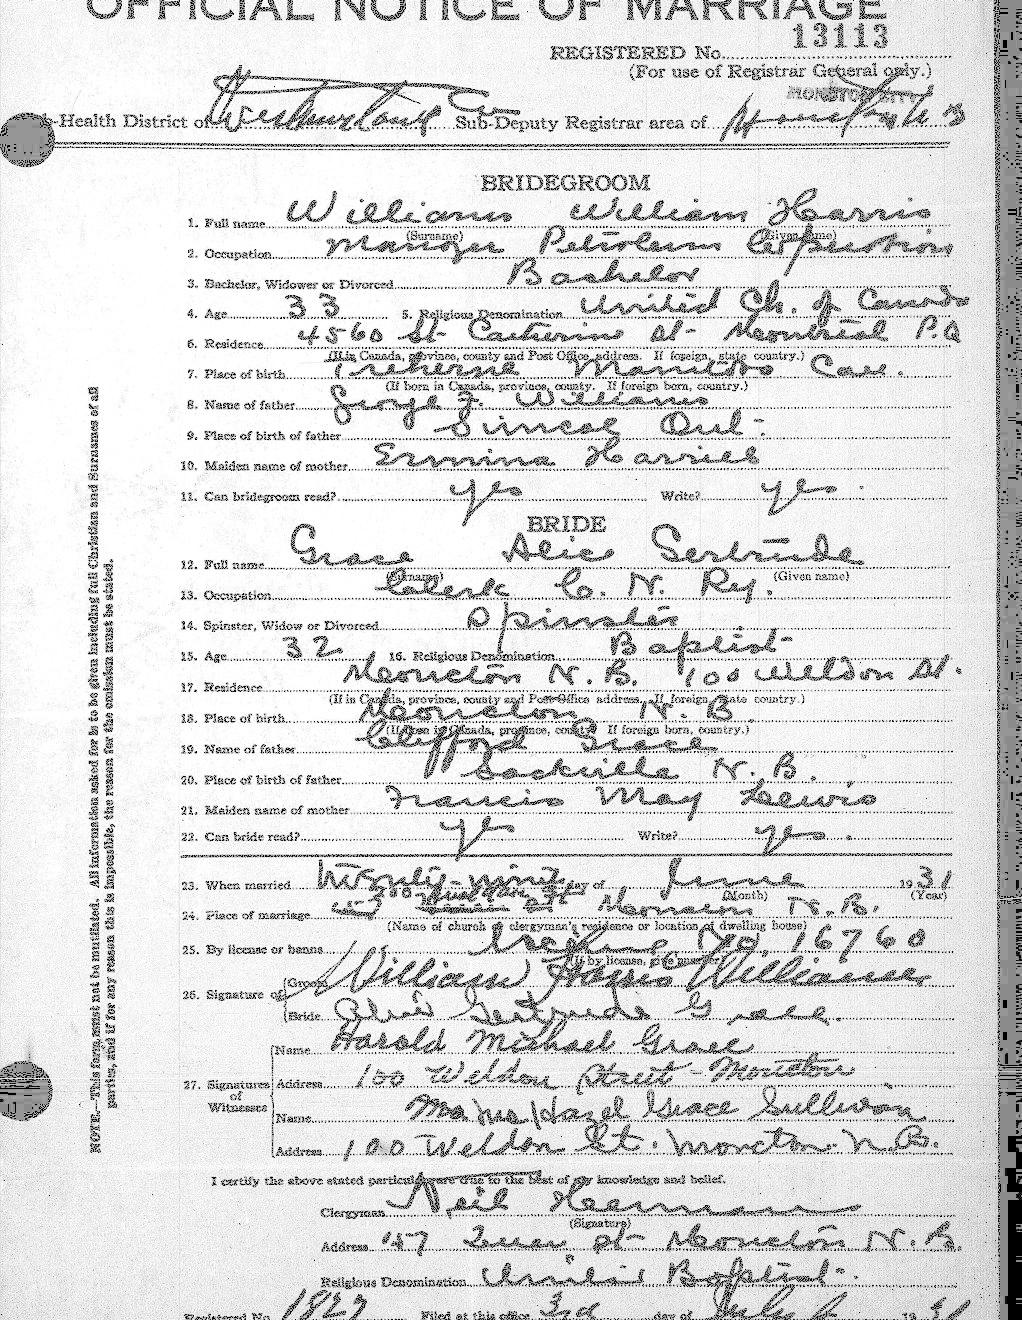 OFFICIAL NOTICE OF MARRIAGE
REGISTERED No. 13113
(For use of Registrar General only.)
MONCTON CITY
b-Health District of Westmorland Co Sub-Deputy Registrar area of
BRIDEGROOM
1. Full name Williams William Harris
(Surname) (Given name)
2. Occupation Manager Petroleum Corporation
3. Bachelor, Widower or Divorced Bachelor
4. Age 33 5. Religious Denomination United Ch. of Canada
6. Residence 4560 St Catherine St- Montreal P.Q
(If in Canada, province, county and Post Office address. If foreign, state country.)
7. Place of birth Treherne Manitoba Can.
(If born in Canada, province, county. If foreign born, country.)
8. Name of father George F. Williams
9. Place of birth of father Simcoe Ont-
10. Maiden name of mother Ermina Harris
11. Can bridegroom read? yes Write? yes.
BRIDE
12. Full name Grace Alice Gertrude
(Surname) (Given name)
13. Occupation Clerk C. N. Ry.
14. Spinster, Widow or Divorced Spinster
15. Age 32 16. Religious Denomination Baptist
17. Residence Moncton N.B. 100 Weldon St.
(If in Canada, province, county and Post Office address. If foreign, state country.)
18. Place of birth Moncton N.B.
(If born in Canada, province, county. If foreign born, country.)
19. Name of father Clifford Grace
20. Place of birth of father Sackville N.B.
21. Maiden name of mother Francis May Lewis
22. Can bride read? yes Write? yes.
23. When married twenty-nine day of June 1931
(Month) (Year)
24. Place of marriage Moncton N.B.
(Name of church or clergyman's residence or location of dwelling house)
25. By license or banns No. 16760
(If by license, give number)
26. Signature of Groom William Harris Williams
Bride Alice Gertrude Grace.
27. Signatures of Witnesses
Name Harold Michael Grace
Address 100 Weldon Street - Moncton
Name Hazel Grace Sullivan
Address 100 Weldon St. Moncton N.B.
I certify the above stated particulars are true to the best of my knowledge and belief.
Clergyman Neil Herman
(Signature)
Address 157 Queen St- Moncton N.B.
Religious Denomination United Baptist.
Registered No. 1827 Filed at this office 3rd day of July 1931
NOTE.—This form must not be mutilated. All information asked for is to be given including full Christian and Surnames of all
parties, and if for any reason this is impossible, the reason for the omission must be stated.